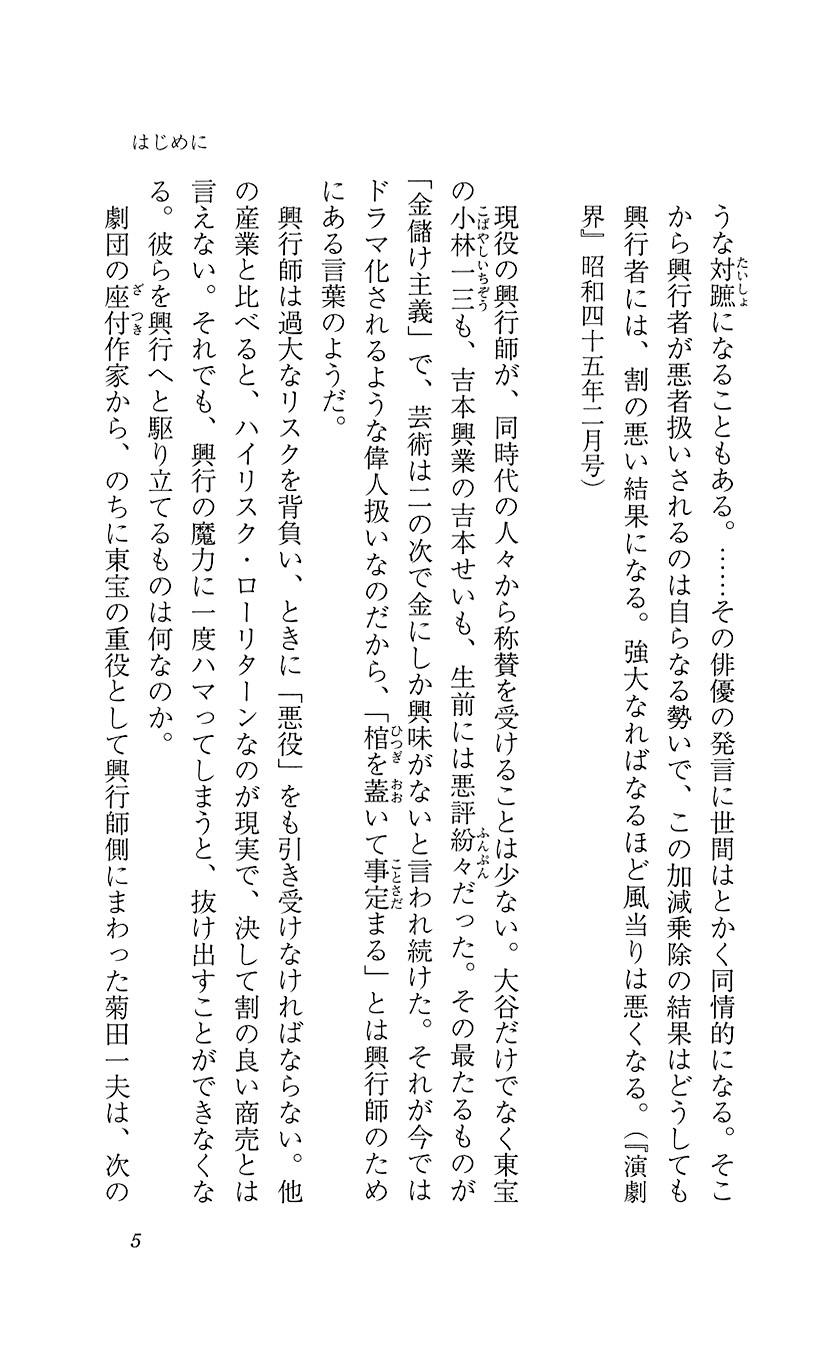 はじめに
うな対蹠になることもある。……その俳優の発言に世間はとかく同情的になる。そこ
から興行者が悪者扱いされるのは自らなる勢いで、この加減乗除の結果はどうしても
興行者には、割の悪い結果になる。強大なればなるほど風当りは悪くなる。（『演劇
界』昭和四十五年二月号）
現役の興行師が、同時代の人々から称賛を受けることは少ない。大谷だけでなく東宝
の小林一三も、吉本興業の吉本せいも、生前には悪評紛々だった。その最たるものが
「金儲け主義」で、芸術は二の次で金にしか興味がないと言われ続けた。それが今では
ドラマ化されるような偉人扱いなのだから、「棺を蓋いて事定まる」とは興行師のため
にある言葉のようだ。
興行師は過大なリスクを背負い、ときに「悪役」をも引き受けなければならない。他
の産業と比べると、ハイリスク・ローリターンなのが現実で、決して割の良い商売とは
言えない。それでも、興行の魔力に一度ハマってしまうと、抜け出すことができなくな
る。彼らを興行へと駆り立てるものは何なのか。
劇団の座付作家から、のちに東宝の重役として興行師側にまわった菊田一夫は、次の
5